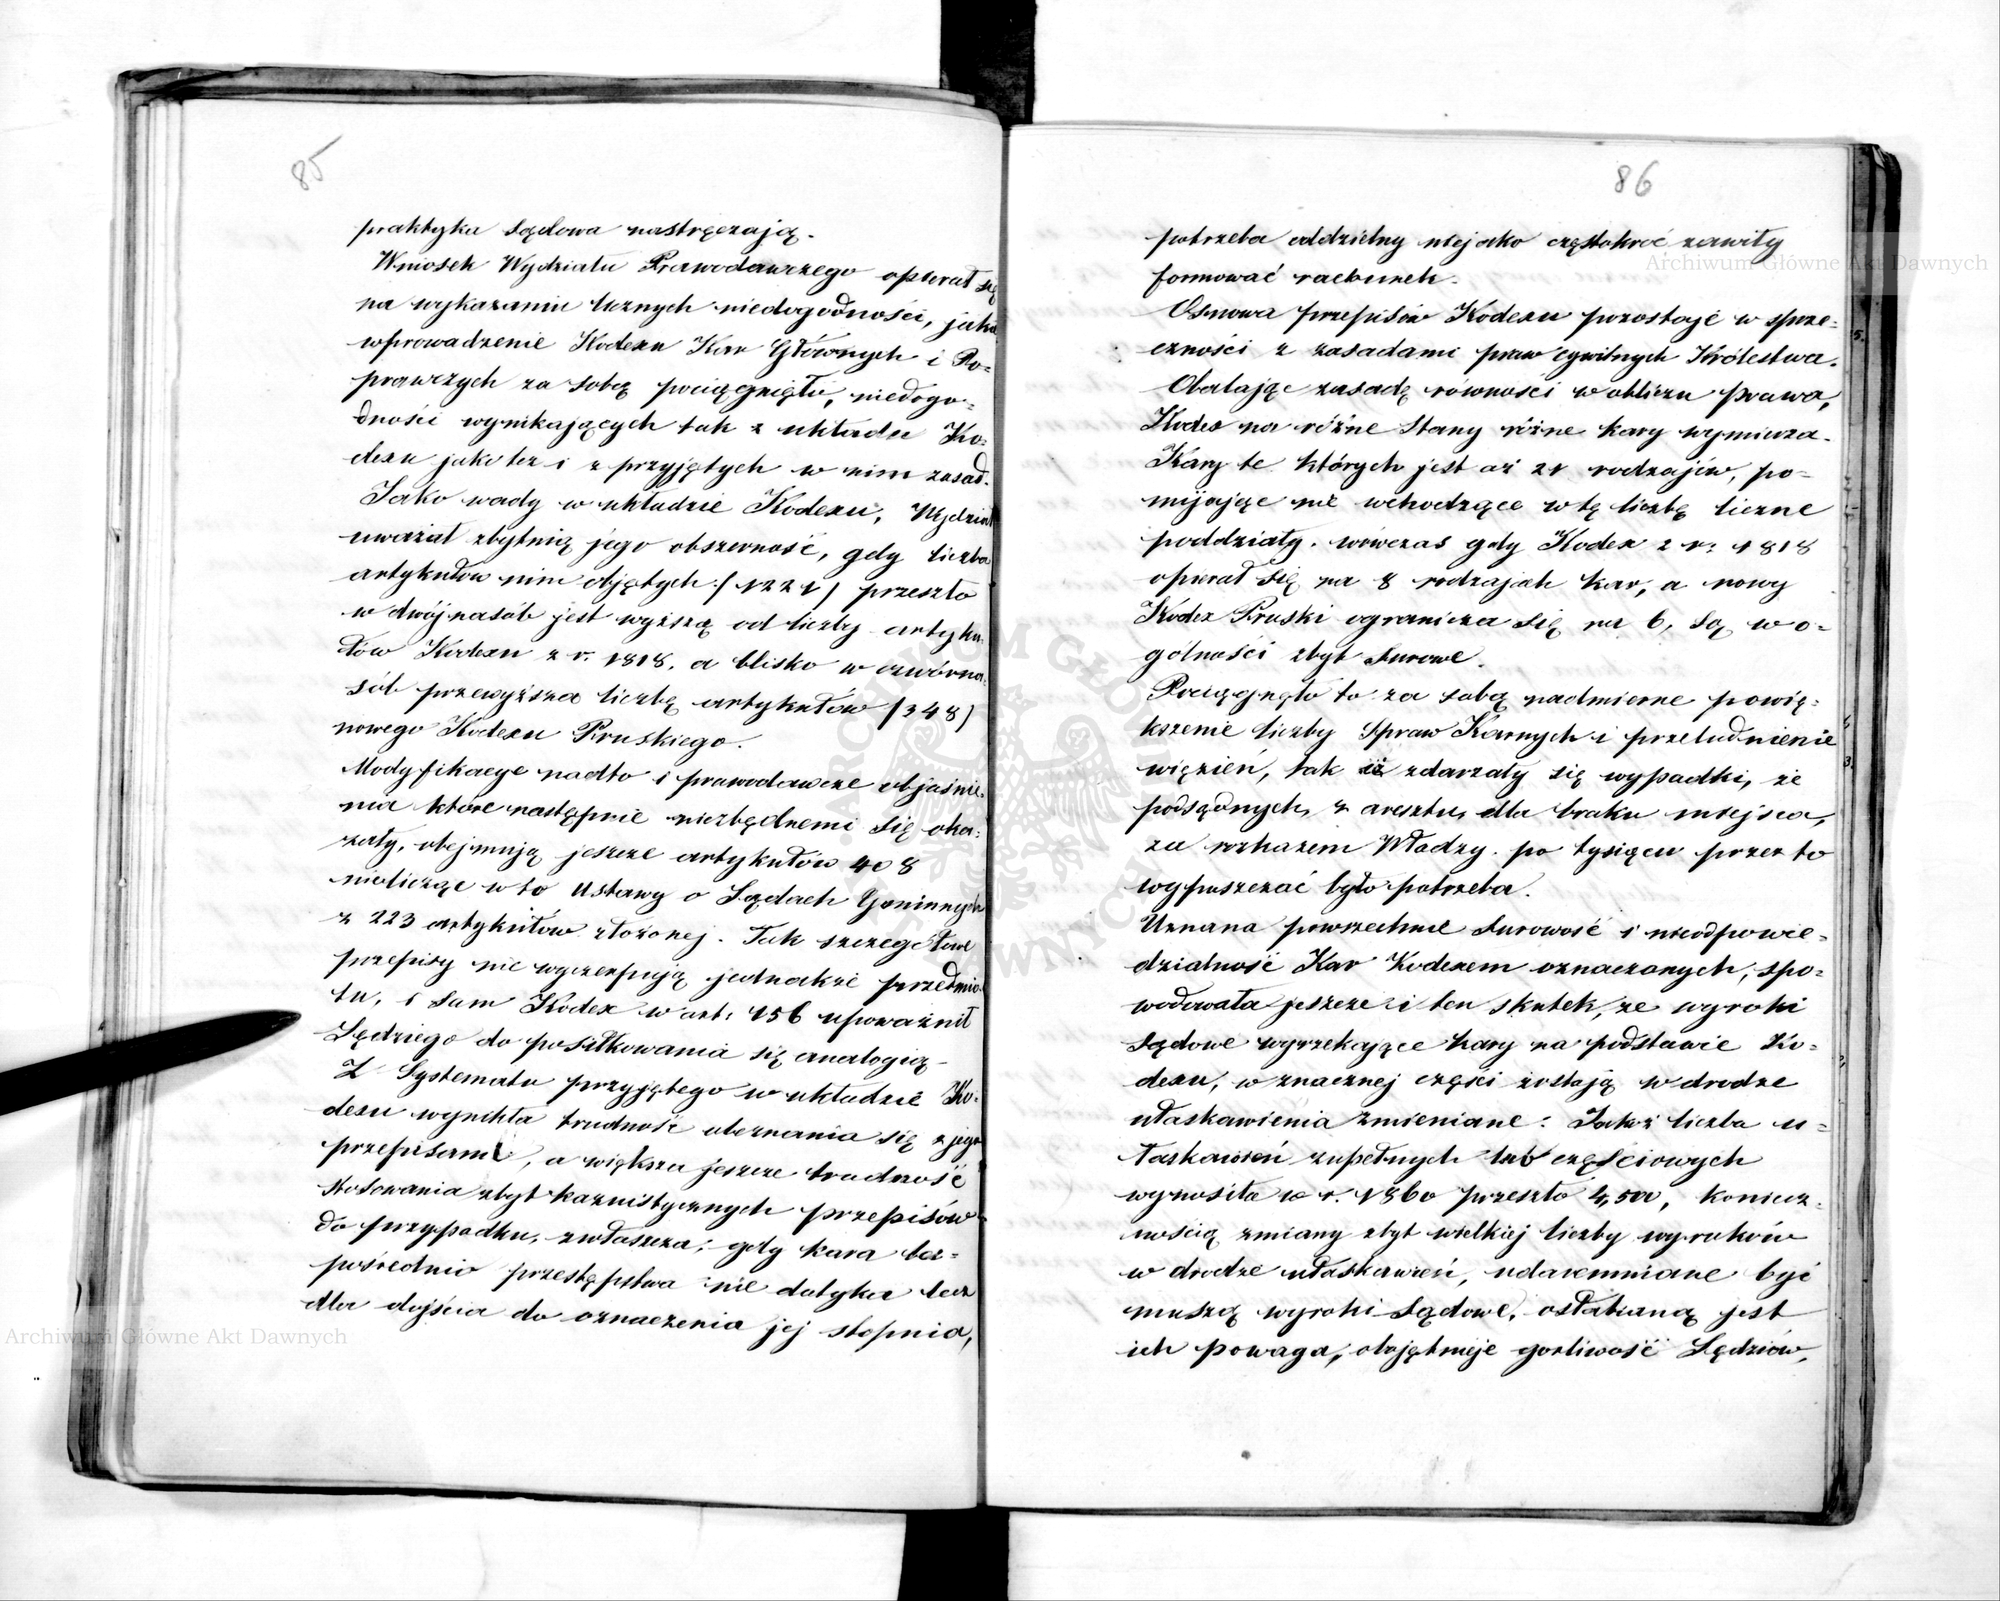 85
praktyka sądowa nastręczają.
Wniosek Wydziału Prawodawczego opierał się
na wykazaniu licznych niedogodności, jakie
wprowadzenie Kodexu Kar Głównych i Po-
prawczych za sobą pociągnęło, niedogo-
dności wynikających tak z układu Ko-
dexu jako też i z przyjętych w nim zasad.
Jako wady w układzie Kodexu, Wydział
uważał zbytnią jego obszerność, gdy liczba
artykułów nim objętych /1221/ przeszło
w dwójnasób jest wyższą od liczby artyku-
łów Kodexu z r. 1818. a blisko w czwórna-
sób przewyższa liczbę artykułów /348/
nowego Kodexu Pruskiego.
Modyfikacye nadto i prawodawcze objaśnie-
nia które następnie niezbędnemi się oka-
zały, obejmują jeszcze artykułów 408
nielicząc w to Ustawy o Sądach Gminnych
z 223 artykułów złożonej. Tak szczegółowe
przepisy nie wyczerpują jednakże przedmio-
tu, i sam Kodex w art: 156 upoważnił
Sędziego do posiłkowania się analogią
Z Systematu przyjętego w układzie Ko-
dexu wynikła trudność obeznania się z jego
przepisami, a większa jeszcze trudność
stosowania zbyt kazuistycznych przepisów
do przypadku, zwłaszcza, gdy kara bez-
pośrednio przestępstwa nie dotyka lecz
dla dojścia do oznaczenia jej stopnia,
86
potrzeba oddzielny niejako częstokroć zawiły
formować rachunek.
Osnowa przepisów Kodexu pozostaje w sprze-
czności z zasadami praw cywilnych Królestwa.
Obalając zasadę równości w obliczu prawa,
Kodex na różne Stany różne kary wymierza.
Kary te których jest aż 21 rodzajów, po-
mijając nie wchodzące w tę liczbę liczne
poddziały, wówczas gdy Kodex z r: 1818
opierał się na 8 rodzajach kar, a nowy
Kodex Pruski ogranicza się na 6, są w o-
gólności zbyt surowe.
Pociągnęło to za sobą nadmierne powię-
kszenie liczby Spraw Karnych i przeludnienie
więzień, tak iż zdarzały się wypadki, że
podsądnych, z aresztu, dla braku miejsca,
za rozkazem Władzy. po tysiącu przez to
wypuszczać było potrzeba.
Uznana powszechnie surowość i nieodpowie-
dzialność Kar Kodexem oznaczonych, spo-
wodowała jeszcze i ten skutek, że wyroki
sądowe wyrzekające kary na podstawie Ko-
dexu, w znacznej części zostają w drodze
ułaskawienia zmieniane: Jakoż liczba u-
łaskawień zupełnych lub częściowych
wynosiła w r. 1860 przeszło 4,500, koniecz-
nością zmiany zbyt wielkiej liczby wyroków
w drodze ułaskawień, udaremniane być
muszą wyroki Sądowe, osłabianą jest
ich powaga, obojętnieje gorliwość Sędziów,
Archiwum Główne Akt Dawnych
Archiwum Główne Akt Dawnych